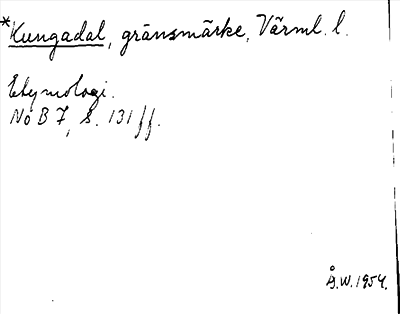 *Kungadal, gränsmärke, Värml. l.
Etymologi.
NoB 7, s. 131 ff.
Å.W. 1954.